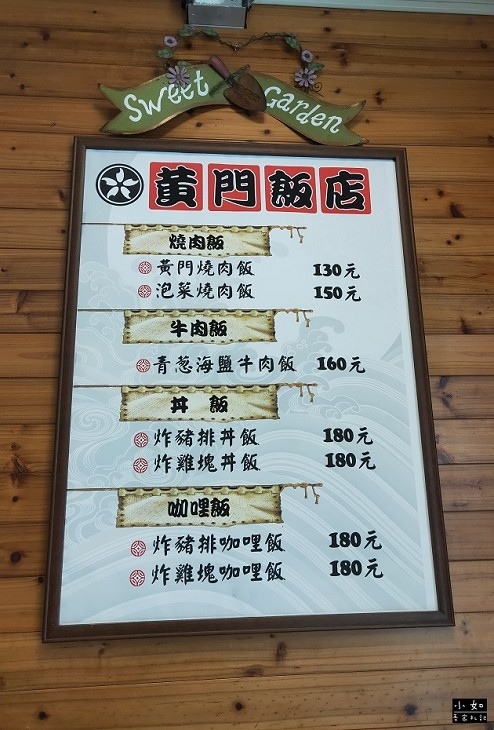 Sweet Garden
黃門飯店
燒肉飯
黃門燒肉飯 130元
泡菜燒肉飯 150元
牛肉飯
青蔥海鹽牛肉飯 160元
丼 飯
炸豬排丼飯 180元
炸雞塊丼飯 180元
咖哩飯
炸豬排咖哩飯 180元
炸雞塊咖哩飯 180元
小如